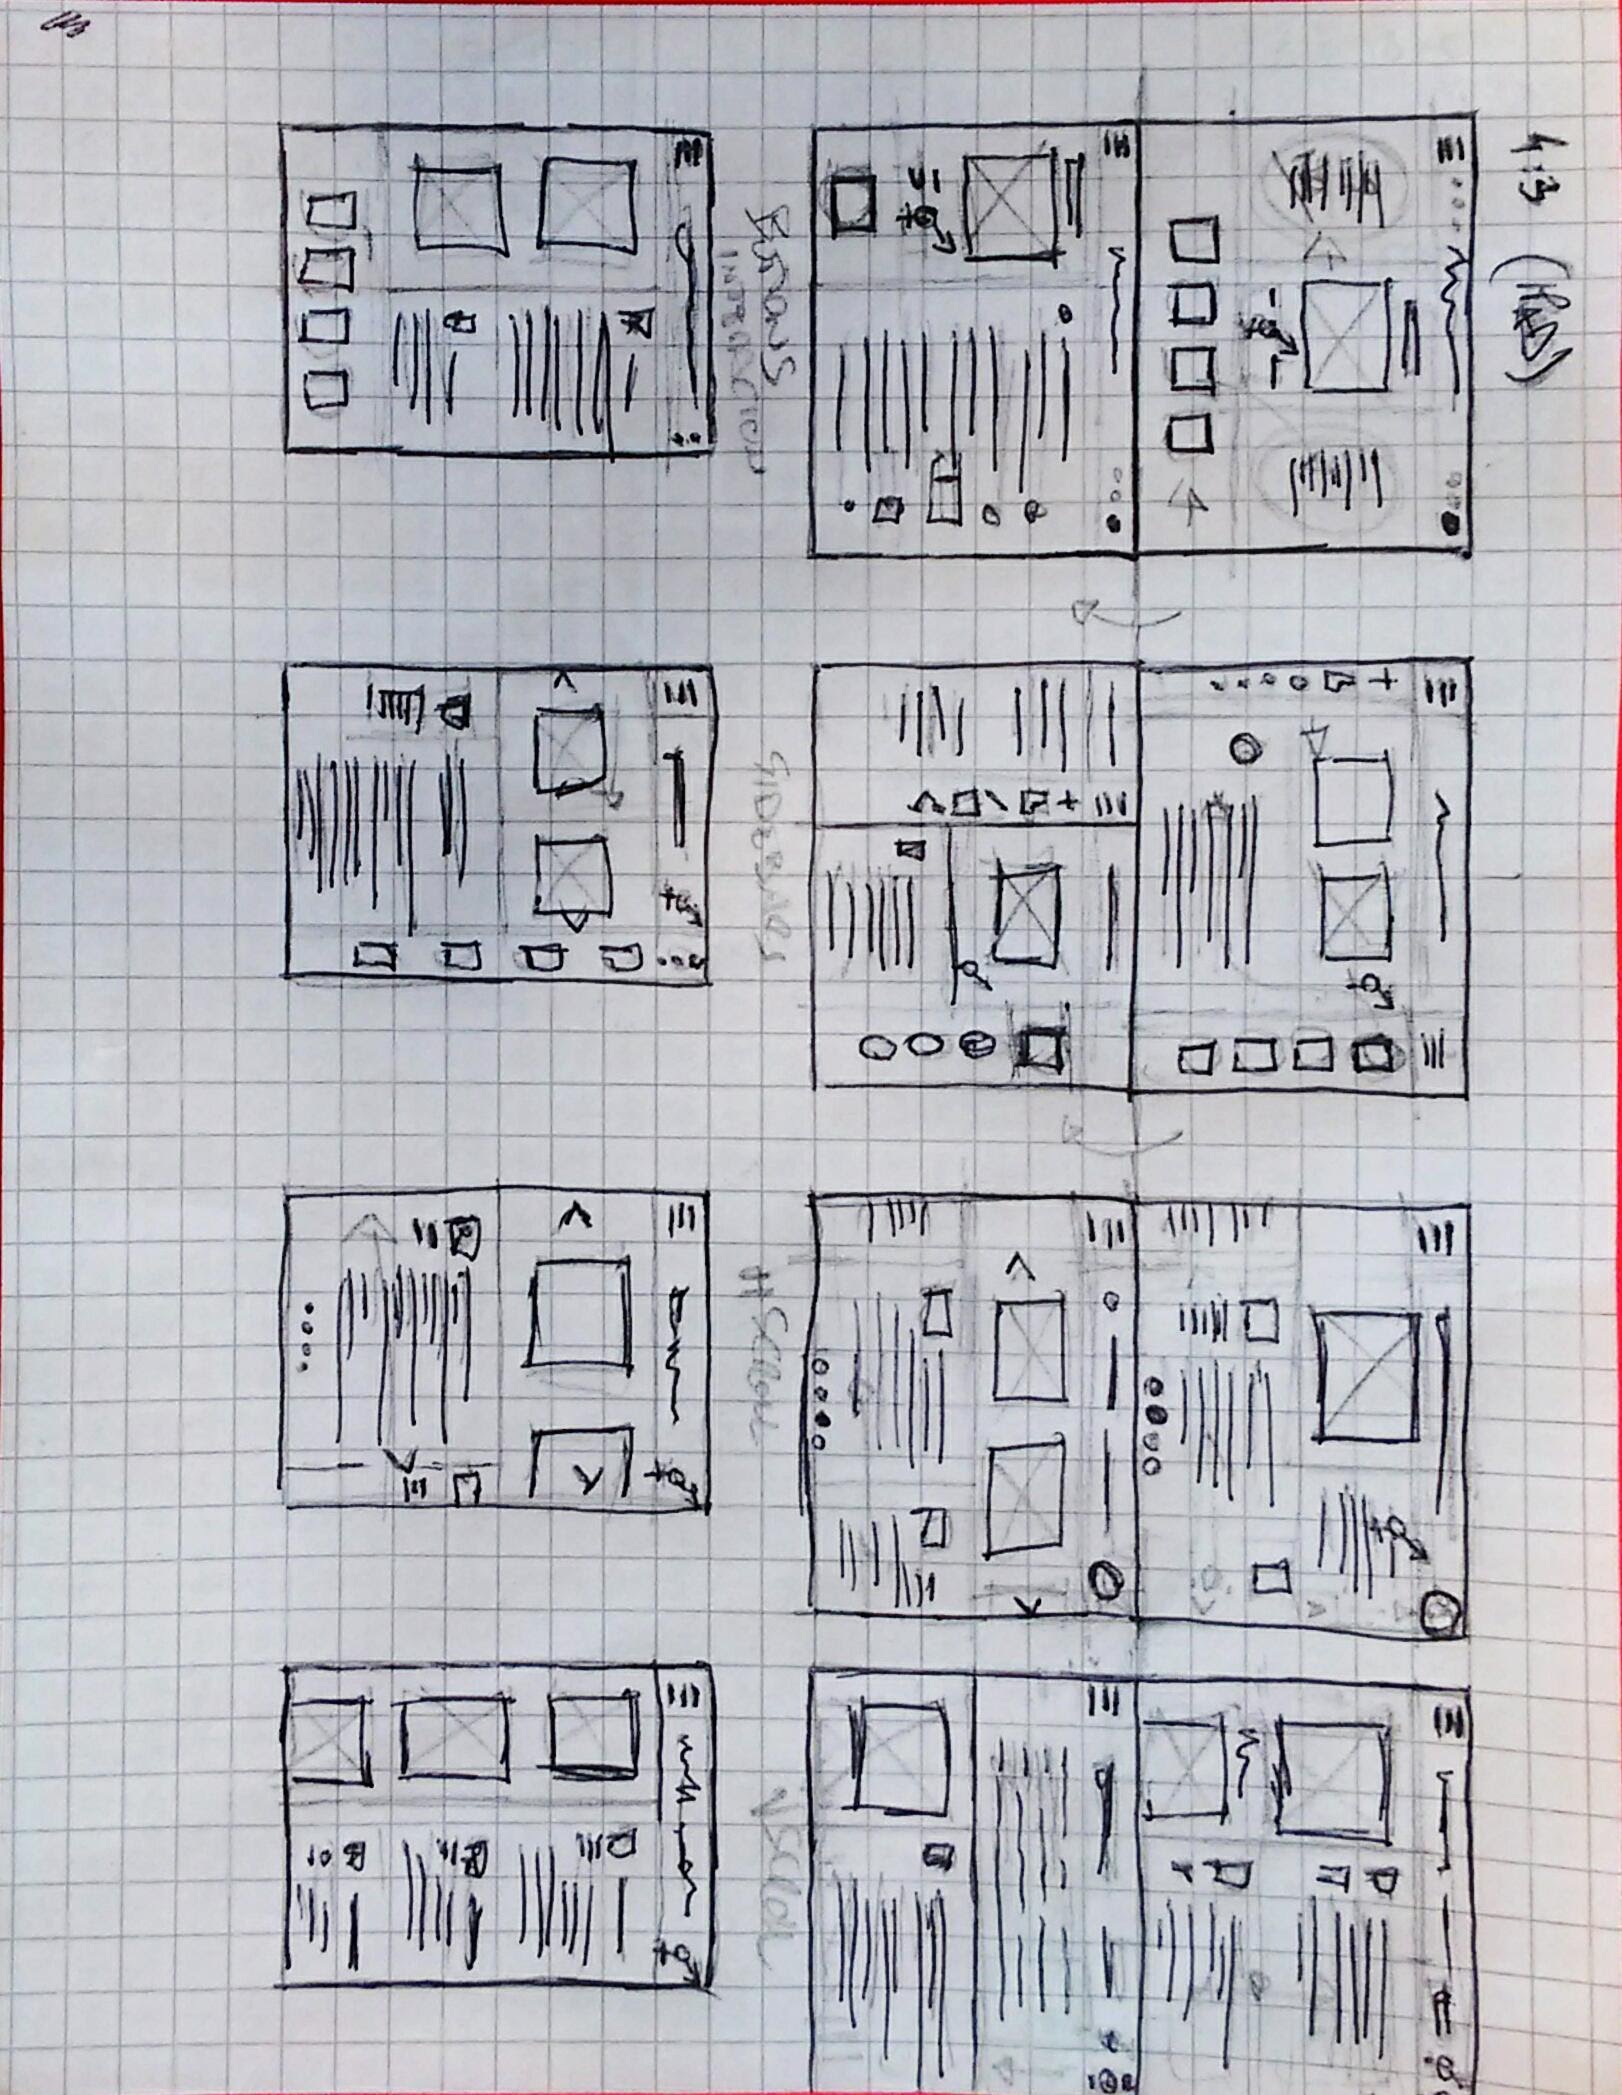 4:3 (IPAD)
BUTTONS
INTERACTION
SIDEBARS
H SCROLL
V SCROLL